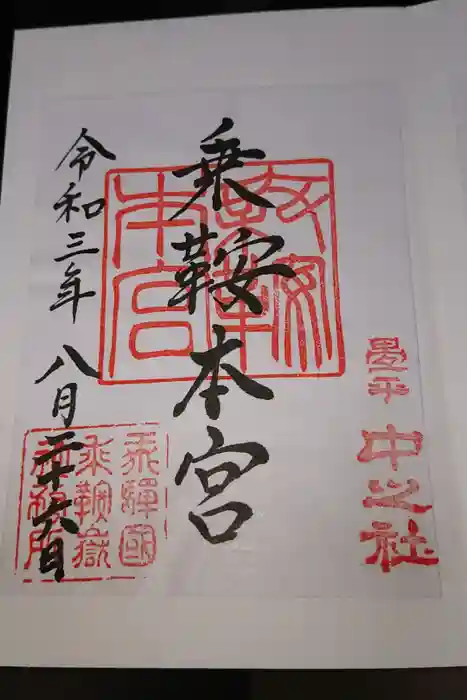 畳平
中之社
乗鞍本宮
乗鞍本宮
令和三年八月二十六日
飛驒國
乗鞍嶽